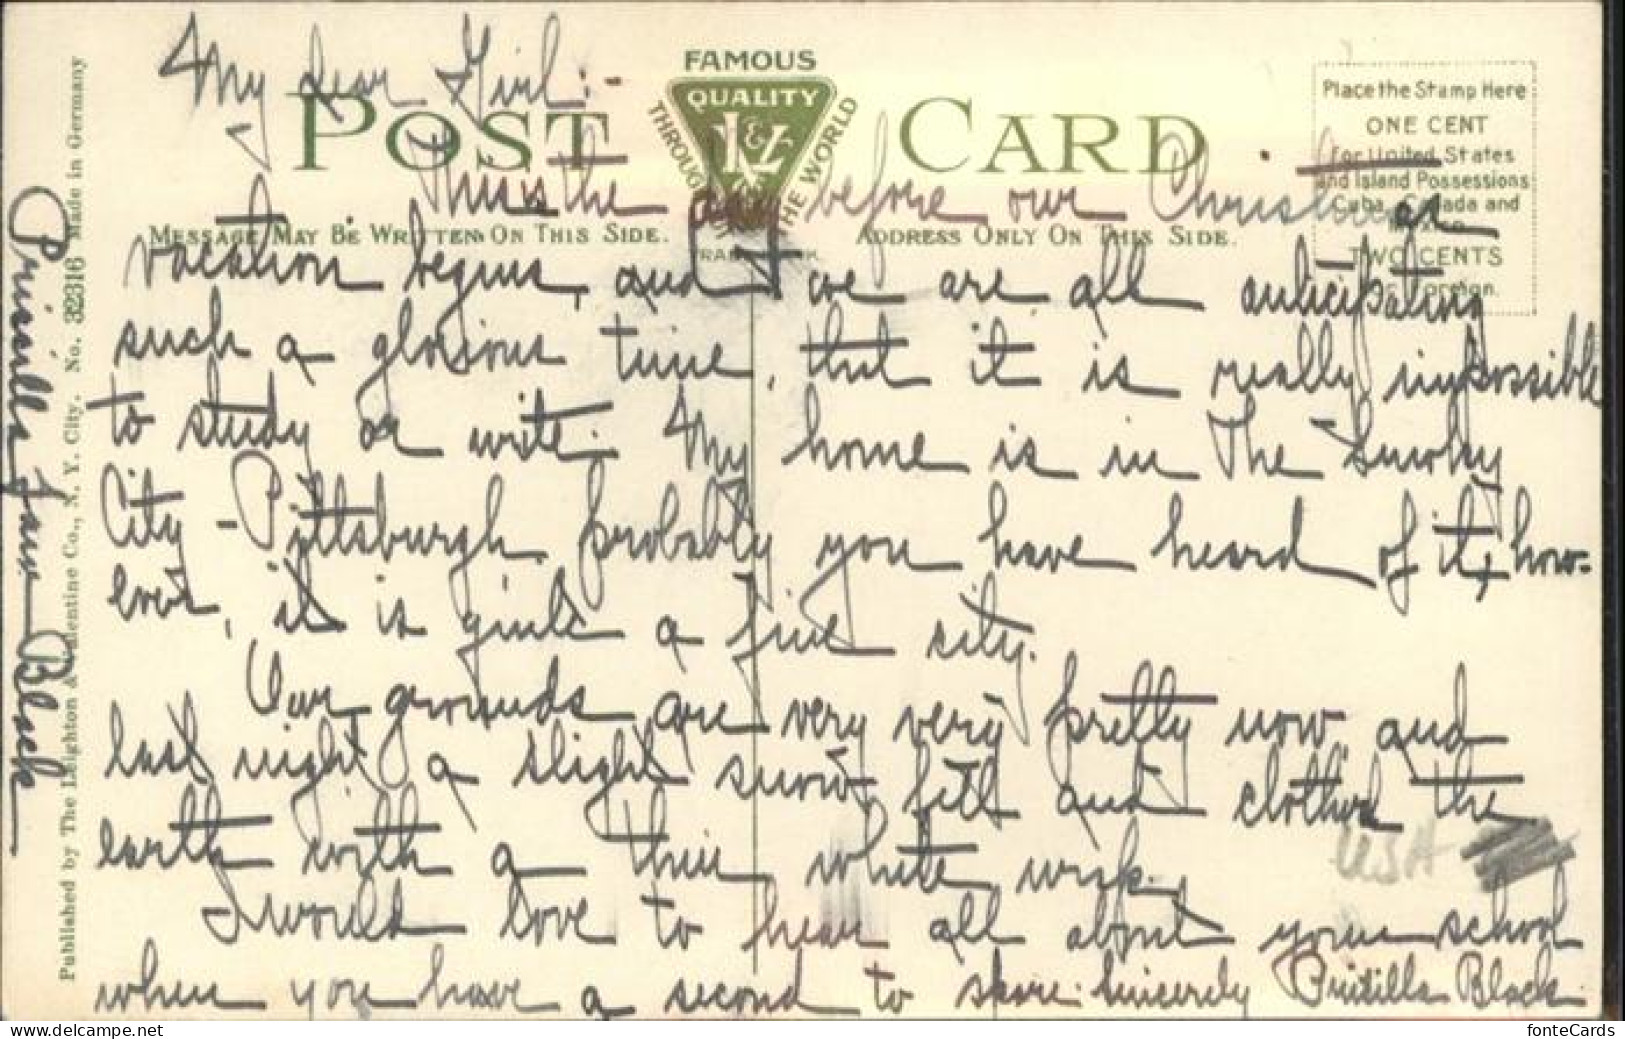 My dear Girl:-
FAMOUS
QUALITY
L&V
THROUGHOUT THE WORLD
POST CARD
Place the Stamp Here
ONE CENT
For United States
and Island Possessions
Cuba, Canada and
Mexico
TWO CENTS
For Foreign.
MESSAGE MAY BE WRITTEN ON THIS SIDE.
TRADE MARK
ADDRESS ONLY ON THIS SIDE.
This is the day before our Christmas
vacation begins, and we are all anticipating
such a glorious time, that it is really impossible
to study or write. My home is in The Smoky
City - Pittsburgh, probably you have heard of it, how-
ever, it is quite a fine city.
Our grounds are very very pretty now and
last night a slight snow fell and clothed the
earth with a thin white wrap.
I would love to hear all about your school
when you have a second to spare. Sincerely Priscilla Black.
Priscilla Jane Black
Published by The Leighton & Valentine Co., N. Y. City. No. 32316 Made in Germany
USA
fonteCards
https://www.delcampe.net